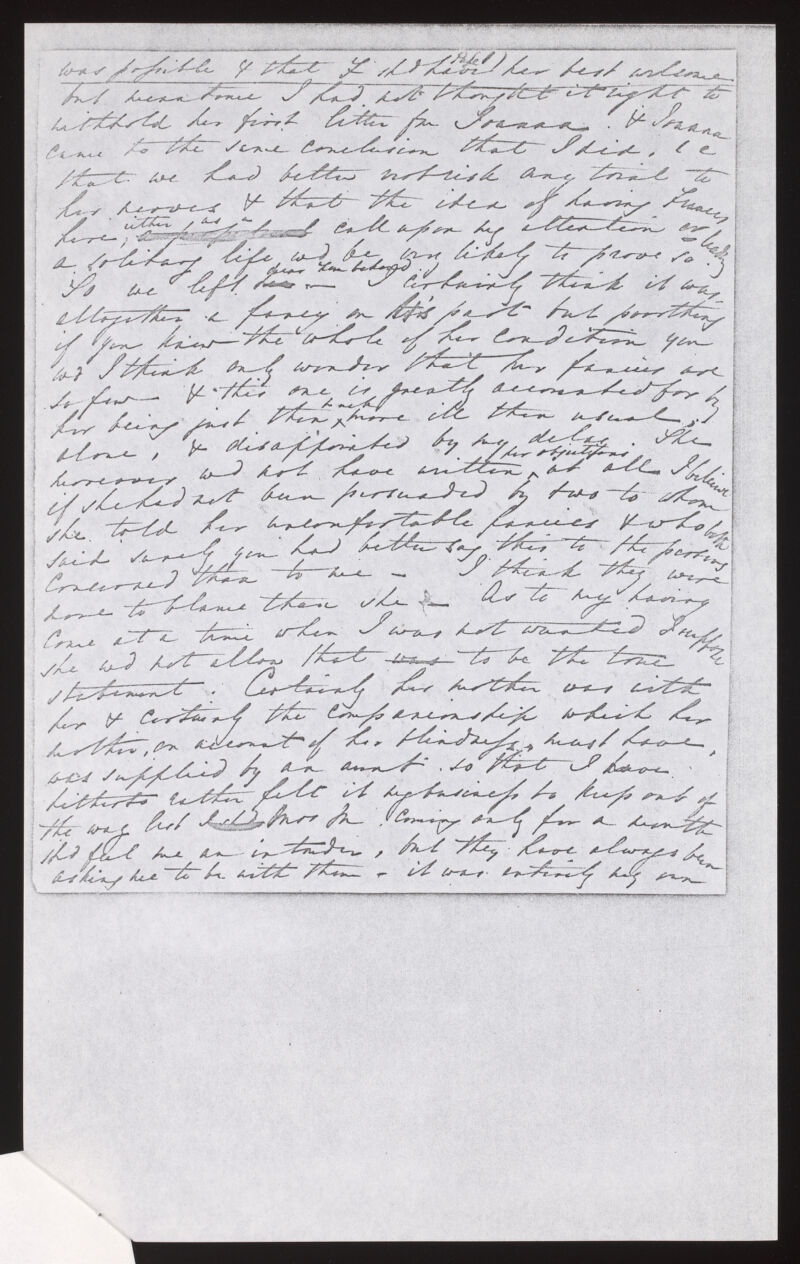 was possible & that F shd have her best welcome
but meantime I had not thought it right to
withhold her first letter fm Joanna. & Joanna
came to the same conclusion that I did, i e
that we had better not risk any trial to
her nerves & that the idea of having Frances
here, either as a call upon my attention or
a solitary life wd be very likely to prove so
So we left I certainly think it was
altogether a fancy on his part but poor thing
if you knew the whole of her condition you
wd I think only wonder that her fancies are
so few — & this one is greatly accounted for by
her being just then more ill than usual,
alone, & disappointed by my delay. She
moreover wd not have written her objections at all I believe
if she had not been persuaded by two to whom
she told her uncomfortable fancies & who both
said surely you had better say this to the persons
concerned than to me — I think they were
more to blame than she — As to my having
come at a time when I was not wanted I suppose
she wd not allow that was to be the true
statement. Certainly her mother was with
her & certainly the companionship which her
mother, on account of her blindness, must have,
was supplied by an aunt so that I have
hitherto rather felt it my business to keep out of
the way lest Mrs M. coming only for a month
shd feel me an intruder, but they have always been
asking me to be with them — it was entirely my own